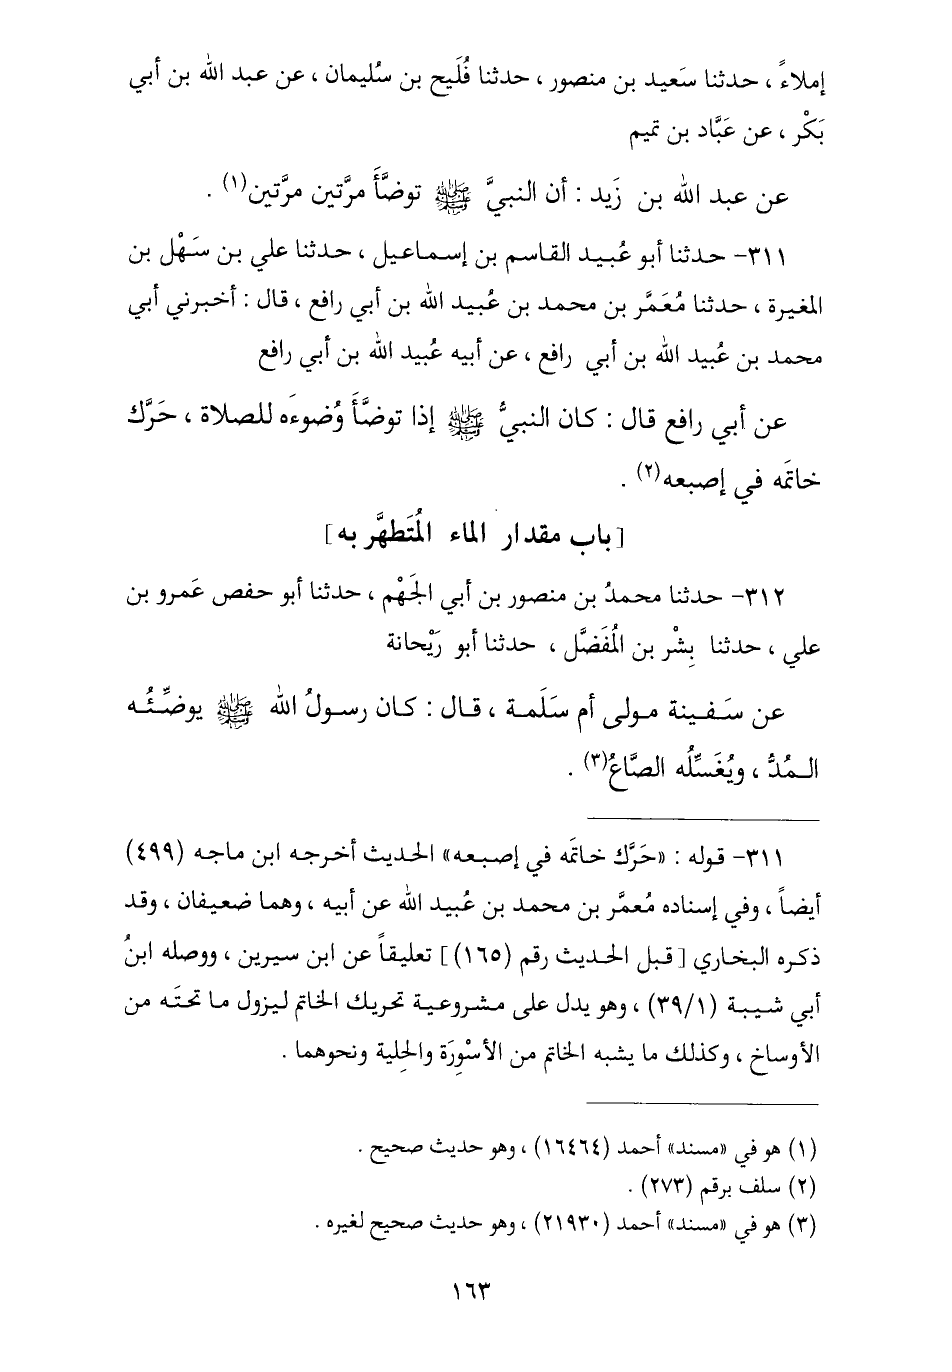 إملاءً ، حدثنا سَعيد بن منصور ، حدثنا فُلَيح بن سُليمان ، عن عبد الله بن أبي
بَكْر ، عن عَبَّاد بن تميم
عن عبد الله بن زَيد : أن النبيَّ ﷺ توضَّأَ مرَّتين مرَّتين(١) .
٣١١- حدثنا أبو عُبيد القاسم بن إسماعيل ، حدثنا علي بن سَهْل بن
المغيرة ، حدثنا مُعَمَّر بن محمد بن عُبيد الله بن أبي رافع ، قال : أخبرني أبي
محمد بن عُبيد الله بن أبي رافع ، عن أبيه عُبيد الله بن أبي رافع
عن أبي رافع قال : كان النبيُّ ﷺ إذا توضَّأَ وُضوءَه للصلاة ، حَرَّك
خاتمَه في إصبعه(٢) .
[باب مقدار الماء المُتَطهَّر به]
٣١٢- حدثنا محمدُ بن منصور بن أبي الجَهْم ، حدثنا أبو حفص عَمرو بن
علي ، حدثنا بِشْر بن المُفَضَّل ، حدثنا أبو رَيْحانة
عن سَفينة مولى أم سَلَمة ، قال : كان رسولُ الله ﷺ يوضِّئُه
المُدُّ ، ويُغَسِّلُه الصَّاعُ(٣) .
٣١١- قوله : «حَرَّك خاتمَه في إصبعه» الحديث أخرجه ابن ماجه (٤٩٩)
أيضاً ، وفي إسناده مُعمَّر بن محمد بن عُبيد الله عن أبيه ، وهما ضعيفان ، وقد
ذكره البخاري [قبل الحديث رقم (١٦٥)] تعليقاً عن ابن سيرين ، ووصله ابنُ
أبي شيبة (٣٩/١) ، وهو يدل على مشروعية تحريك الخاتم ليزول ما تحتَه من
الأوساخ ، وكذلك ما يشبه الخاتم من الأسْوِرَة والحِلية ونحوهما .
(١) هو في «مسند» أحمد (١٦٤٦٤) ، وهو حديث صحيح .
(٢) سلف برقم (٢٧٣) .
(٣) هو في «مسند» أحمد (٢١٩٣٠) ، وهو حديث صحيح لغيره .
١٦٣